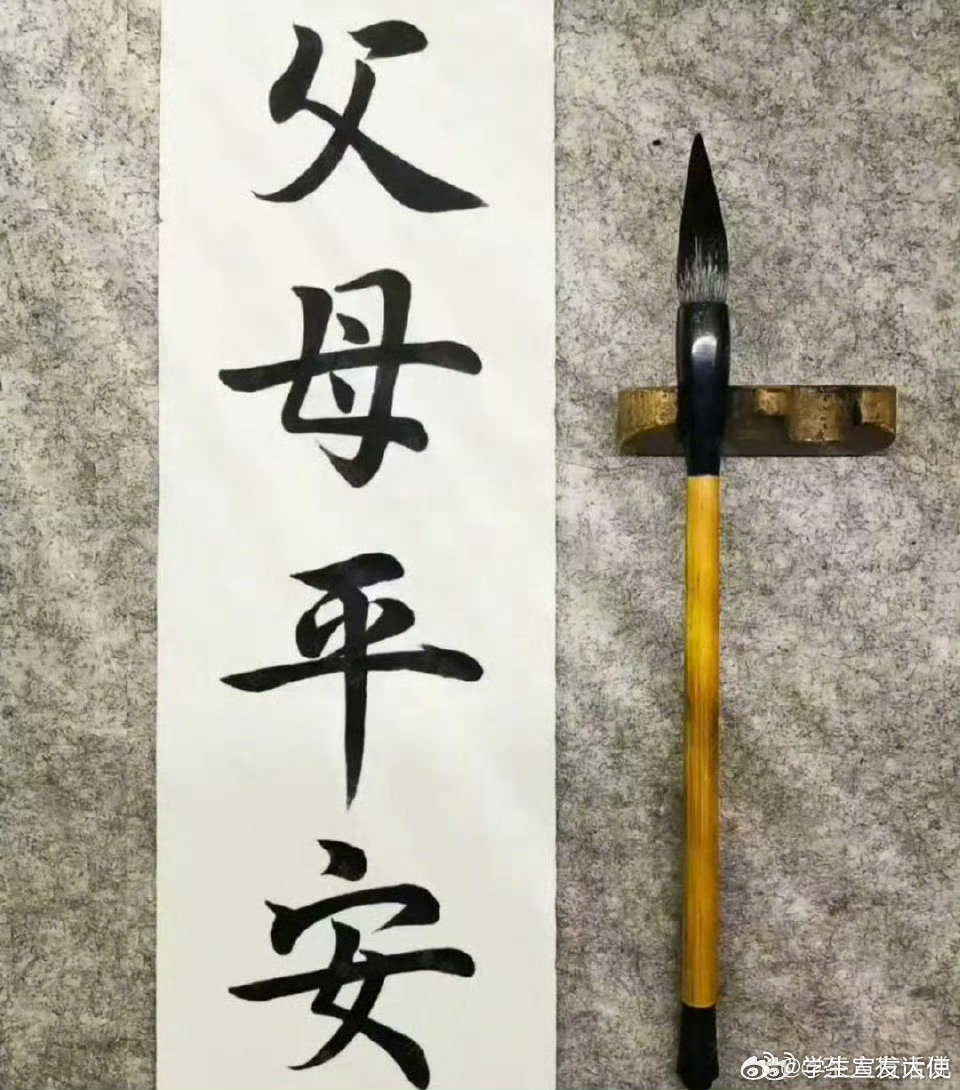 父母平安
@学生宣发天使